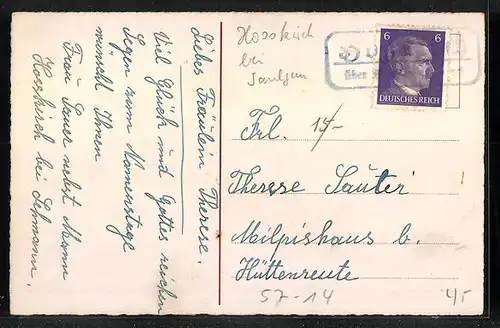 Liebes Fräulein Therese.
Viel Glück und Gottes reichen
Segen zum Namenstage
wünscht Ihnen
Frau Sauer nebst Mann
Hosskirch bei
Hosskirch
bei
Saulgau
6 6
DEUTSCHES REICH
über
Frl.
15-
Therese Sauter
Milpishaus b.
Hüttenreute
57-14